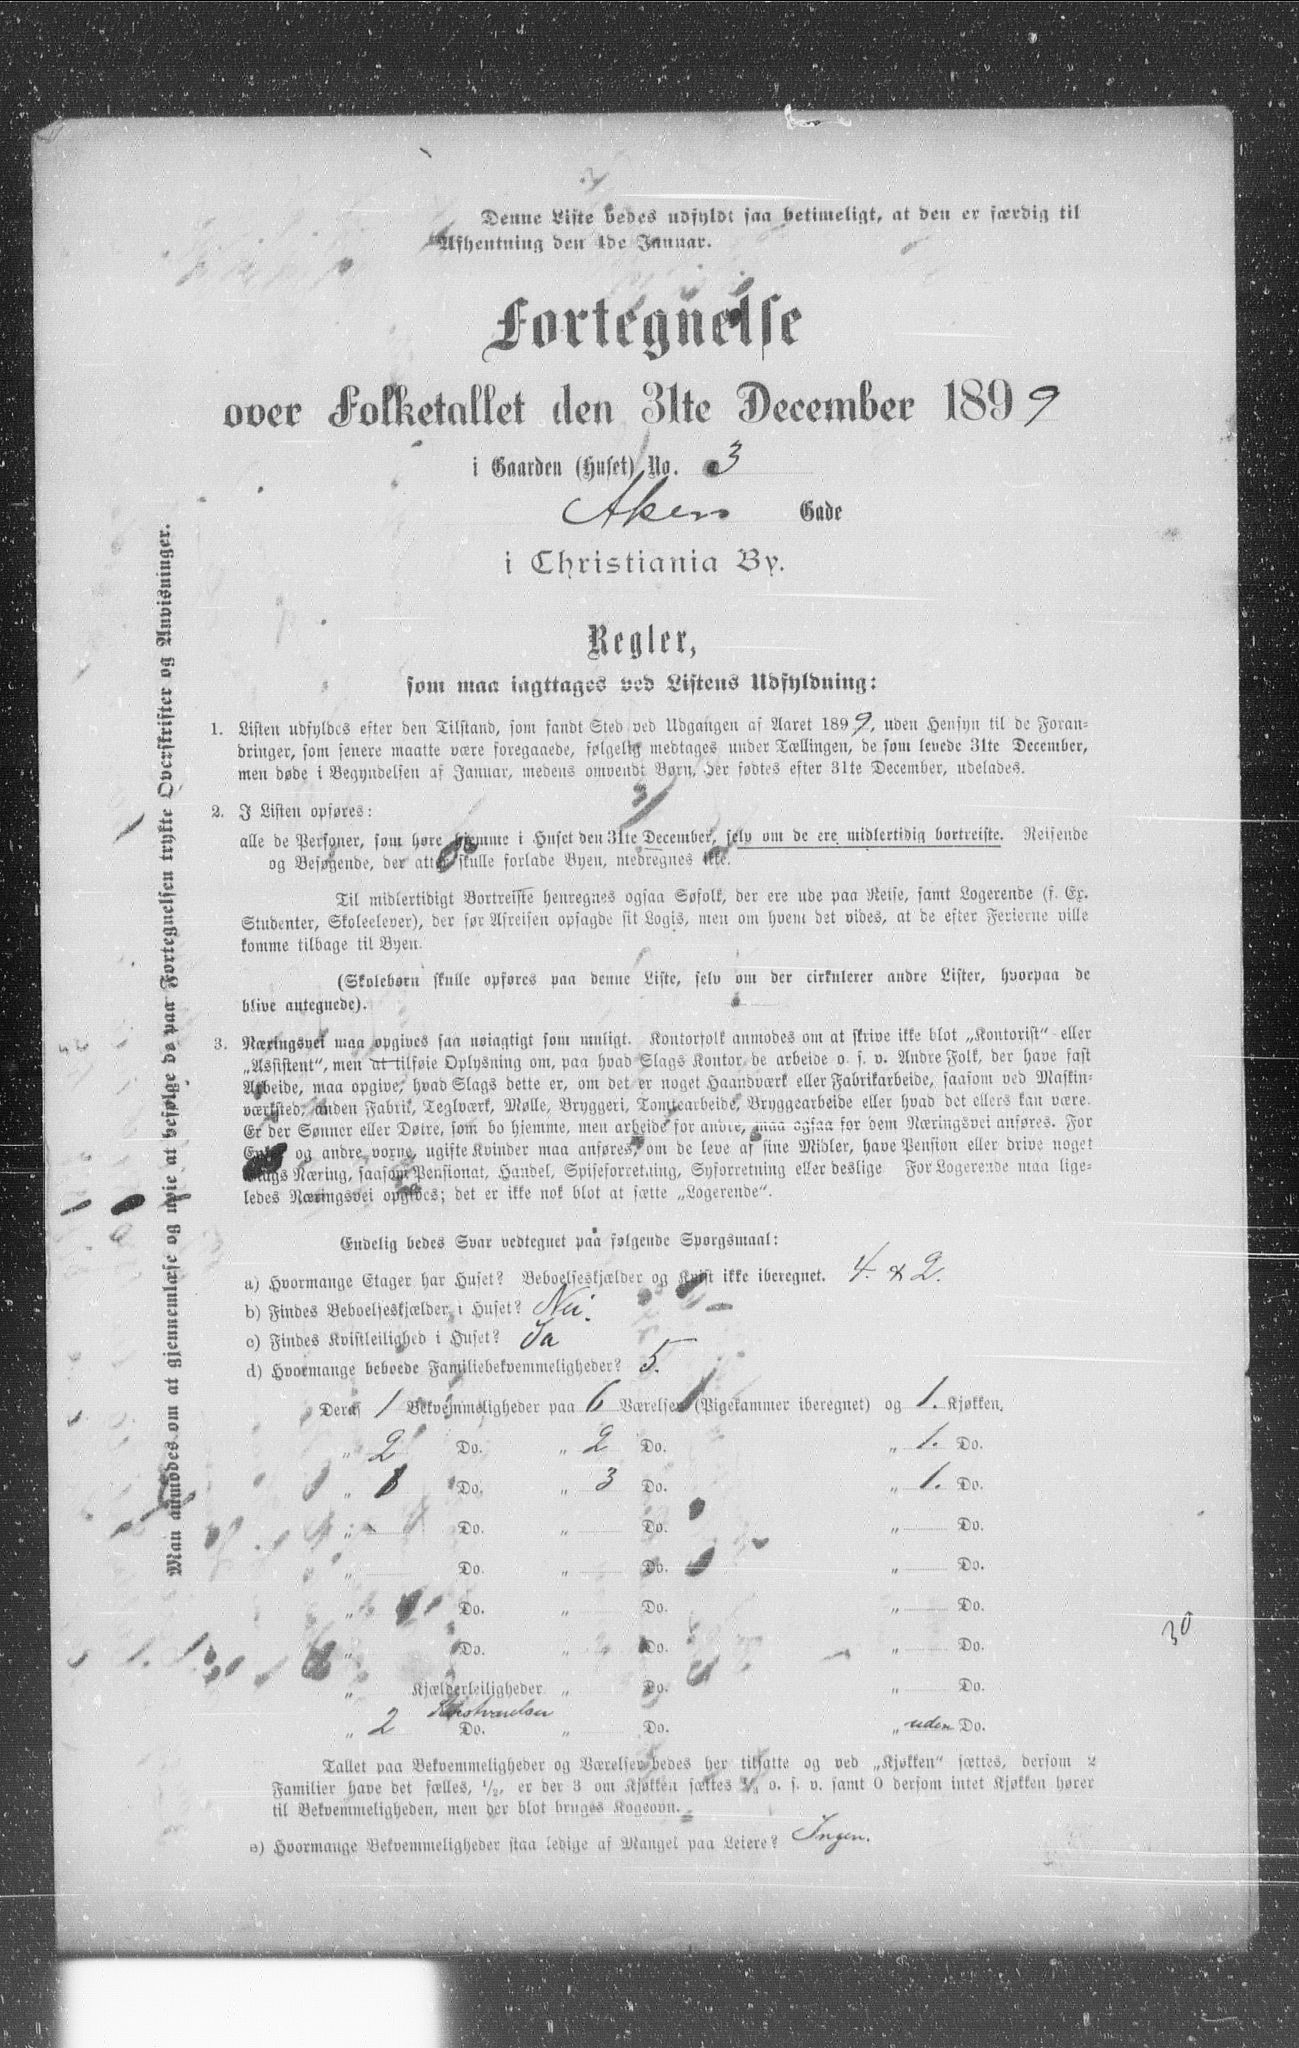 Denne Liste bedes udfyldt saa betimeligt, at den er færdig til
Afhentning den 1de Januar.
Fortegnelse
over Folketallet den 31te December 1899
i Gaarden (Huset) No. 3
Aker Gade
i Christiania By.
Regler,
som maa iagttages ved Listens Udfyldning:
1. Listen udfyldes efter den Tilstand, som fandt Sted ved Udgangen af Aaret 1899, uden Hensyn til de Foran-
dringer, som senere maatte være foregaaede, følgelig medtages under Tællingen, de som levede 31te December,
men døde i Begyndelsen af Januar, medens omvendt Børn, der fødtes efter 31te December, udelades.
2. I Listen opføres:
alle de Personer, som høre hjemme i Huset den 31te December, selv om de ere midlertidig bortreiste. Reisende
og Besøgende, der atter skulle forlade Byen, medregnes ikke.
Til midlertidigt Bortreiste henregnes ogsaa Søfolk, der ere ude paa Reise, samt Logerende (f. Ex.
Studenter, Skoleelever), der før Afreisen opsagde sit Logis, men om hvem det vides, at de efter Ferierne ville
komme tilbage til Byen.
(Skolebørn skulle opføres paa denne Liste, selv om der cirkulerer andre Lister, hvorpaa de
blive antegnede).
3. Næringsvei maa opgives saa nøiagtigt som muligt. Kontorfolk anmodes om at skrive ikke blot „Kontorist“ eller
„Assistent“, men at tilføie Oplysning om, paa hvad Slags Kontor de arbeide o. s. v. Andre Folk, der have fast
Arbeide, maa opgive, hvad Slags dette er, om det er noget Haandværk eller Fabrikarbeide, saasom ved Maskin-
værksted, anden Fabrik, Teglværk, Mølle, Bryggeri, Tomtearbeide, Bryggearbeide eller hvad det ellers kan være.
Er der Sønner eller Døtre, som bo hjemme, men arbeide for andre, maa ogsaa for dem Næringsvei anføres. For
Enker og andre vorne, ugifte Kvinder maa anføres, om de leve af sine Midler, have Pension eller drive noget
Slags Næring, saasom Pensionat, Handel, Spiseforretning, Syforretning eller deslige For Logerende maa lige-
ledes Næringsvei opgives; det er ikke nok blot at sætte „Logerende“.
Endelig bedes Svar vedtegnet paa følgende Spørgsmaal:
a) Hvormange Etager har Huset? Beboelseskjælder og Kvist ikke iberegnet. 4. & 2.
b) Findes Beboelseskjælder i Huset? Nei.
c) Findes Kvistleilighed i Huset? Ja
d) Hvormange beboede Familiebekvemmeligheder? 5.
Deraf 1 Bekvemmeligheder paa 6 Værelser (Pigekammer iberegnet) og 1. Kjøkken.
„ 2 Do. „ 2 Do. „ 1. Do.
„ 1 Do. „ 3 Do. „ 1. Do.
„ Do. „ Do. „ Do.
„ Do. „ Do. „ Do.
„ Do. „ Do. „ Do.
„ Do. „ Do. „ Do.
30
„ Kjælderleiligheder „ Do. „ Do.
„ 2 Do. „ Do. „ uden Do.
Tallet paa Bekvemmeligheder og Værelser bedes her tilsatte og ved „Kjøkken“ sættes, dersom 2
Familier have det fælles, 1/2, er der 3 om Kjøkken sættes 1/3 o. s. v. samt 0 dersom intet Kjøkken hører
til Bekvemmeligheden, men der blot bruges Kogeovn.
e) Hvormange Bekvemmeligheder staa ledige af Mangel paa Leiere? Ingen.
Man anmodes om at gjennemlæse og nøie at befølge de paa Fortegnelsen trykte Overskrifter og Anvisninger.